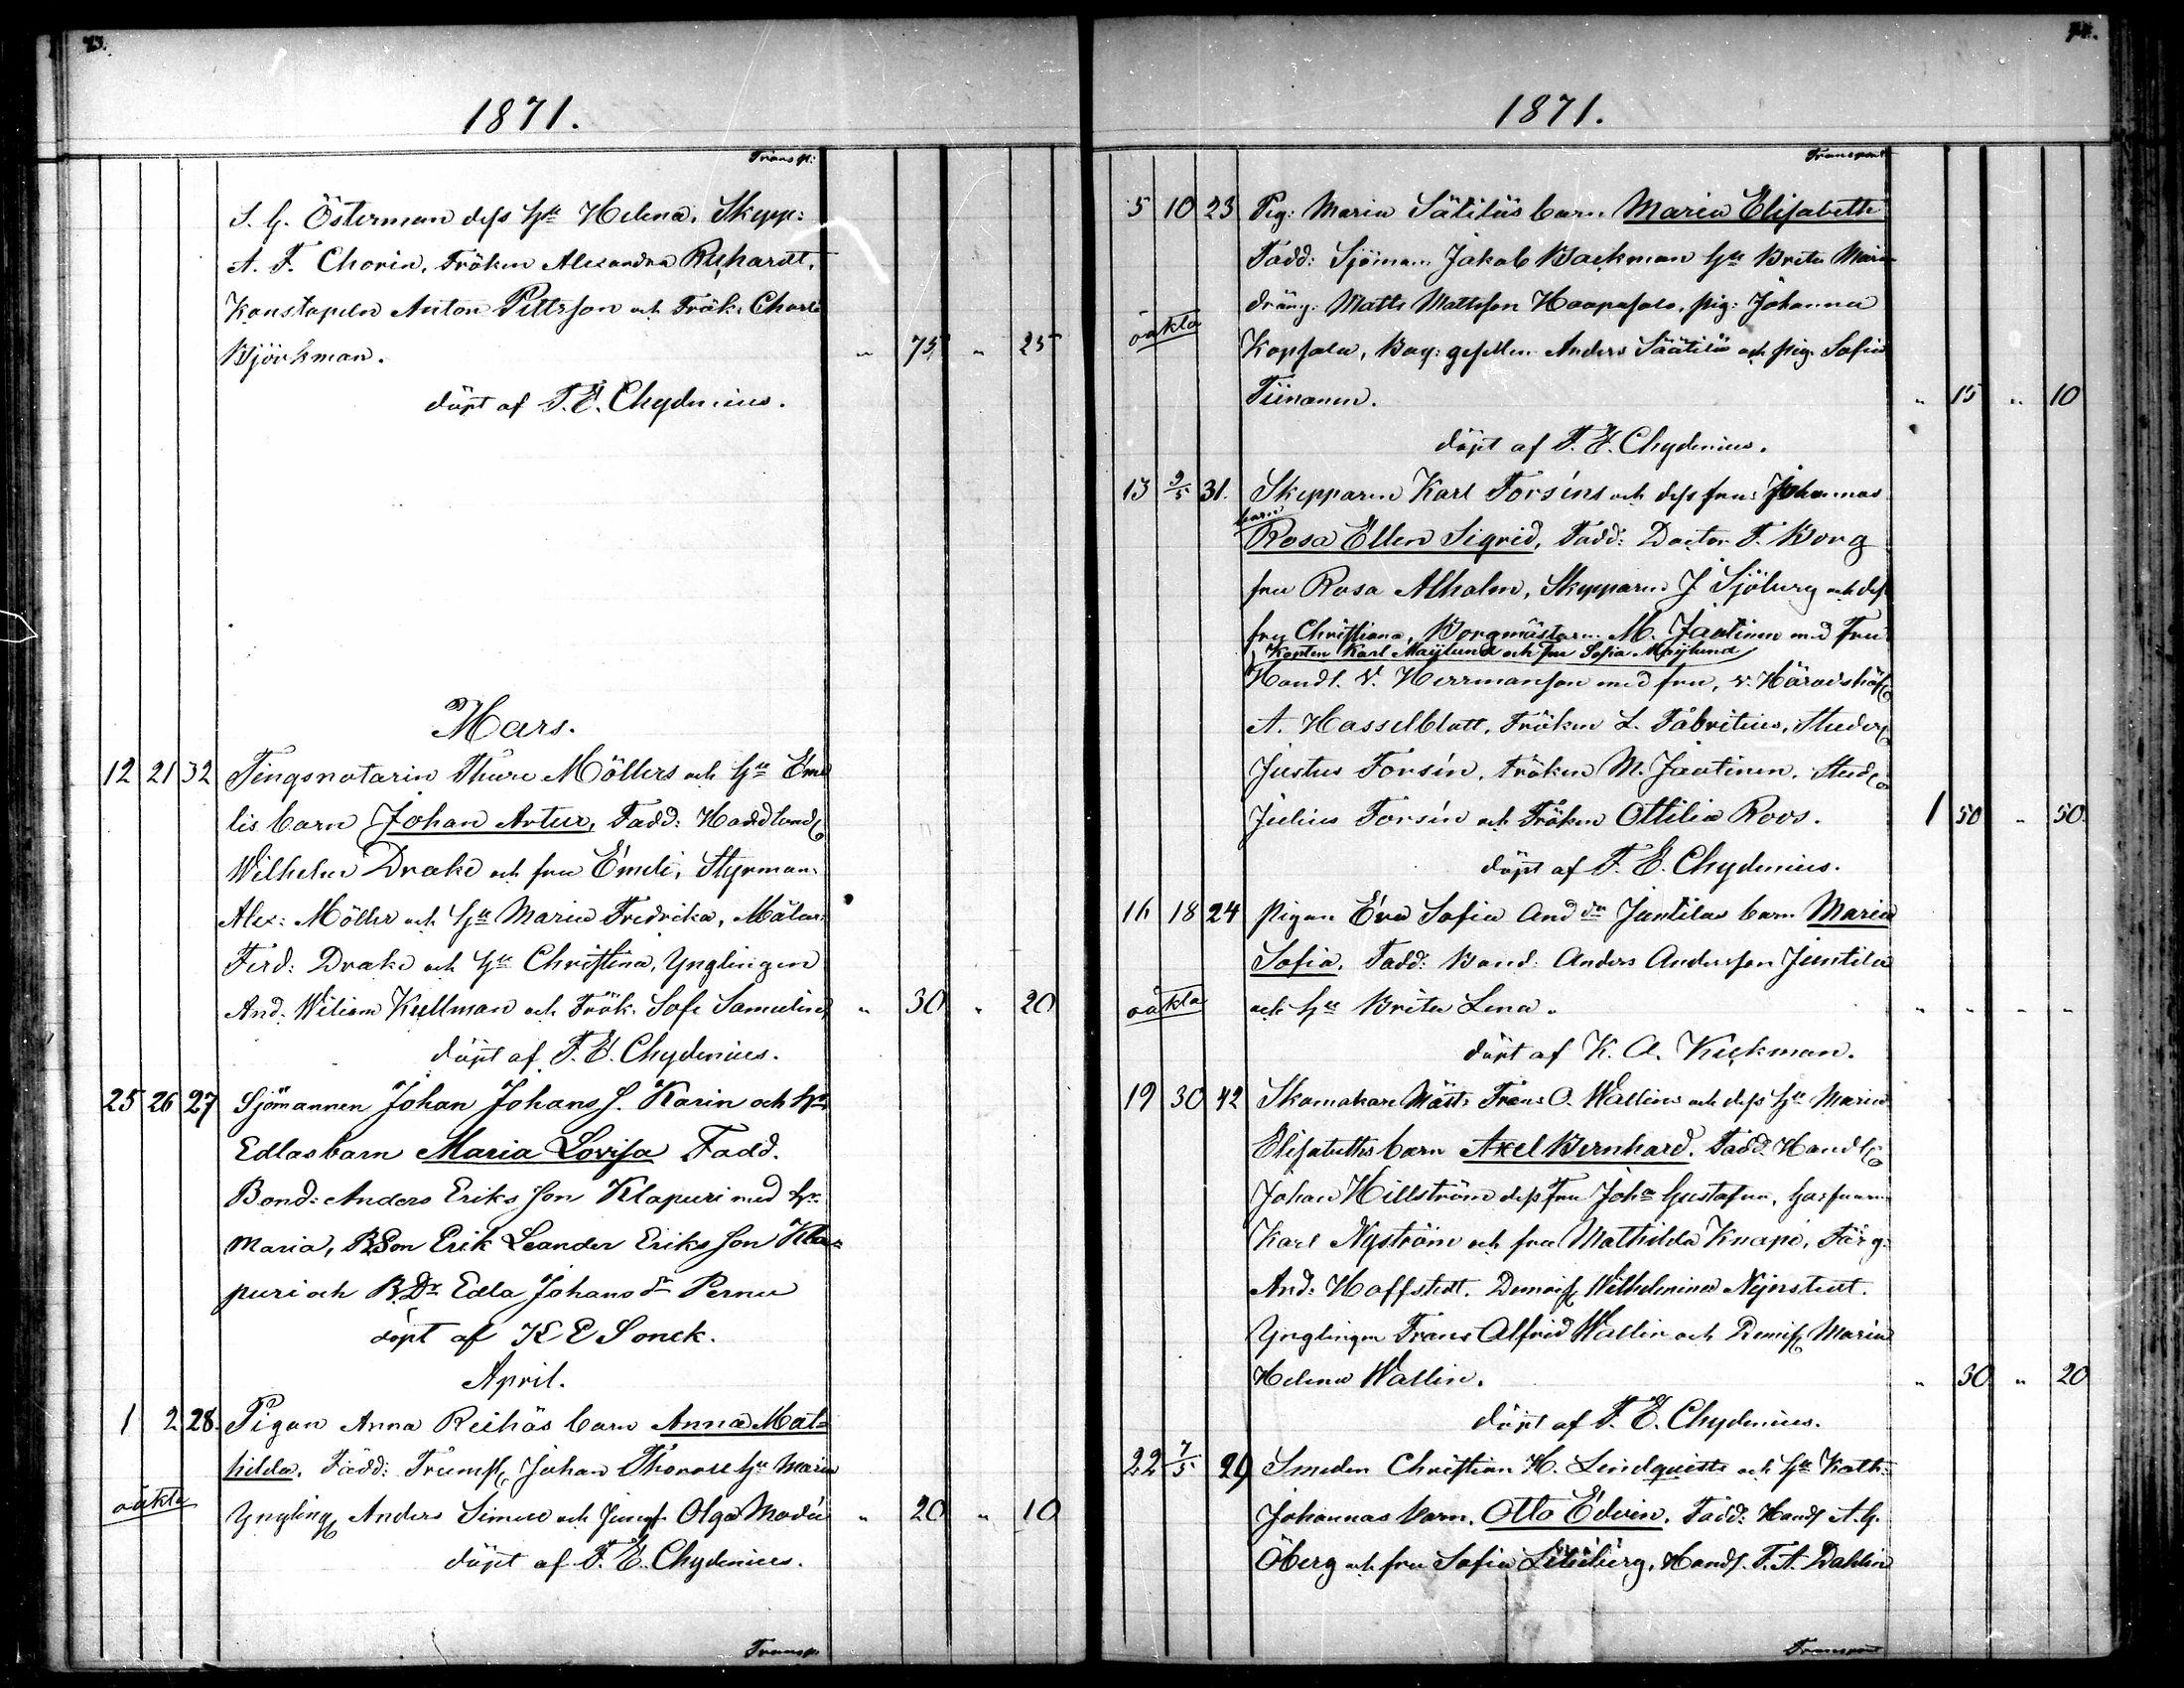 73.
1871.
Transp:
S. G. Österman dess hu Helena, Skepp:
A. F. Chorin, Fröken Alexandra Reichardt,
Konstapeln Anton Pettrson och Frök. Charl.
Björkman. " 75 " 25
döpt af F. E. Chydenius.
Mars.
12 21 32 Tingsnotarin Thure Möllers och hu Eme
lis barn Johan Artur, Fadd: Handland
Wilhelm Drake och fru Emeli, Styrman
Alex: Möller och hu Maria Fredrika, Målar:
Ferd: Drake och hu Christina, Ynglingen
And. Wiliam Kullman och Frök. Sofi Samelin " 30 " 20
döpt af F. E. Chydenius.
25 26 27 Sjömannen Johan Johans S. Karin och hu
Edlas barn Maria Lovisa Fadd.
Bond: Anders Eriksson Klapuri med hu
Maria, B.Son Erik Leander Eriksson Kla=
puri och B.Dr Edla Johansdr Pernu
döpt af K E Sonck.
April.
1 2 28. Pigan Anna Reihäs barn Anna Mat=
hilda. Fadd: Johan Thorroe hu Maria
oäkta Yngling Anders Simell och Jungf. Olga Modée " 20 " 10
döpt af F. E. Chydenius.
Transp.
74.
1871.
Transport
5 10 23 Pig: Maria Sätiläs barn Maria Elisabeth
Fadd: Sjöman Jakob Backman hu Brita Maria
dräng: Matts Mattsson Haapasalo, pig: Johanna
oäkta Kopsala, gesellen Anders Säätilä och pig. Sofia
Tiinanen. " 15 " 10
döpt af F. E. Chydenius.
13 9/5 31. Skepparen Karl Forséns och dess fru Johannas
barn
Rosa Ellen Sigrid, Fadd: Doctor F. Borg
fru Rosa Alholm, Skepparen J Sjöberg och dess
fru Christiana, Borgmästaren M. Jaatinen med Fru
Kapten Karl Maylund och fru Sofia Maylund
Handl. V. Herrmanson med fru, v. Häradshöf
A. Hasselblatt, Fröken L. Fabritius, Studer
Justus Forsén, Fröken M. Jaatinen, Stud
Julius Forsén och Fröken Ottilia Roos. 1 50 " 50
döpt af F. E. Chydenius.
16 18 24 Pigan Eva Sofia And dr Juntilas barn Maria
Sofia, Fadd: Bond: Anders Andersson Juntila
oäkta och hu Brita Lena. " " " "
döpt af K. A. Keckman.
19 30 42 Skomakare Mäst: Frans O. Wallins och dess hu Maria
Elisabeths barn Axel Bernhard. Fadd: Handl
Johan Hillström dess Fru Joha Gustafva,
Karl Nyström och fru Mathilda Knape, Färg:
And: Hoffstedt. Demois Wilhelmina Nynstedt.
Ynglingen Frans Alfred Wallin och Demis Maria
Helena Wallin. " 30 " 20
döpt af F. E. Chydenius.
22 7/5 29 Smeden Christian H. Lindquists och hu Kath:
Johannas barn, Otto Edvin. Fadd: Handl A. G.
Öberg och fru Sofia Handl. F. A. Dahlin
Transport